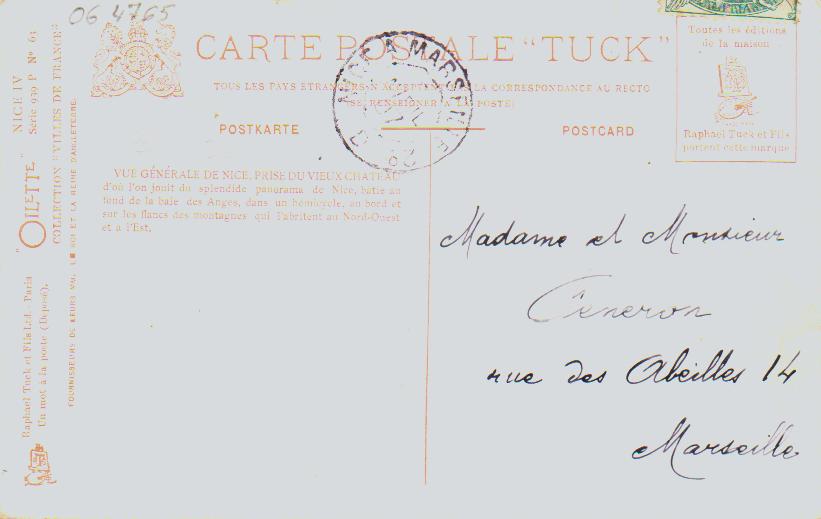 06 4765
CARTE POSTALE "TUCK"
TOUS LES PAYS ETRANGERS N'ACCEPTENT LA CORRESPONDANCE AU RECTO
(SE RENSEIGNER A LA POSTE)
POSTKARTE
POSTCARD
Toutes les éditions
de la maison
Raphael Tuck et Fils
portent cette marque
VUE GÉNÉRALE DE NICE, PRISE DU VIEUX CHATEAU
d'où l'on jouit du splendide panorama de Nice, batie au
fond de la baie des Anges, dans un hémicycle, au bord et
sur les flancs des montagnes qui l'abritent au Nord-Ouest
et a l'Est.
Madame et Monsieur
Ceneron
rue des Abeilles 14
Marseille
"OILETTE" NICE IV
Série 939 P Nº 61
COLLECTION "VILLES DE FRANCE"
Raphael Tuck et Fils Ltd.- Paris
Un mot à la poste (Déposé).
FOURNISSEURS DE LEURS MM. LE ROI ET LA REINE D'ANGLETERRE.